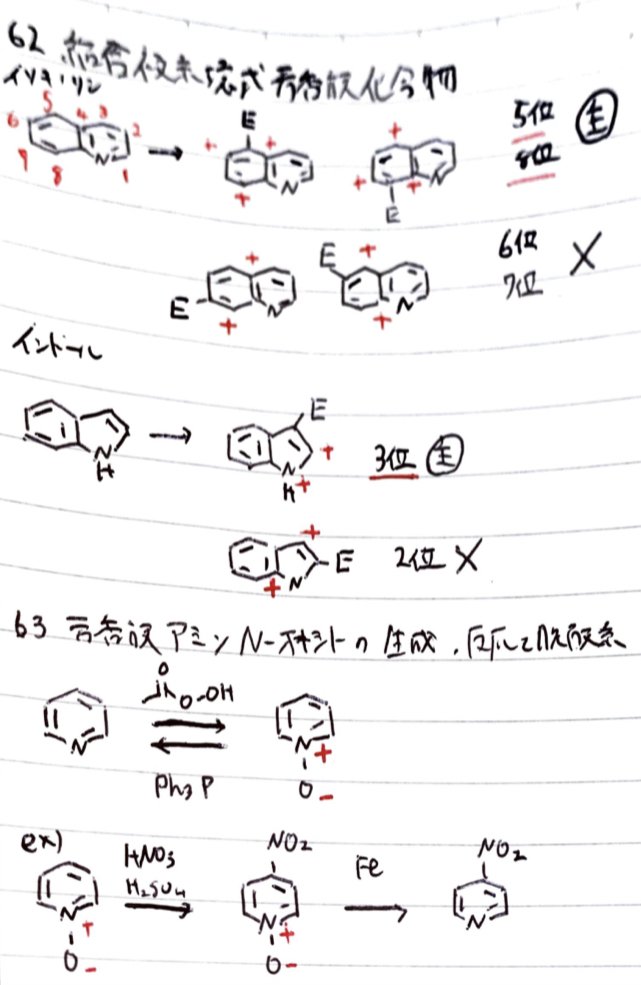 62 縮合複素環式芳香族化合物
イソキノリン
5 4 3
6 2
N
7 8 1
E
+ +
N
+
+
+ +
N
E
5位 主
8位
+
E N
+
E +
N
+
6位
7位 ×
インドール
N
H
E
+
N
H +
3位 主
+
E
+ N
2位 ×
63 芳香族アミンN-オキシドの生成、反応と脱酸素
O
O-OH
N
Ph3P
N +
O -
ex)
N +
O -
HNO3
H2SO4
NO2
N +
O -
Fe
NO2
N